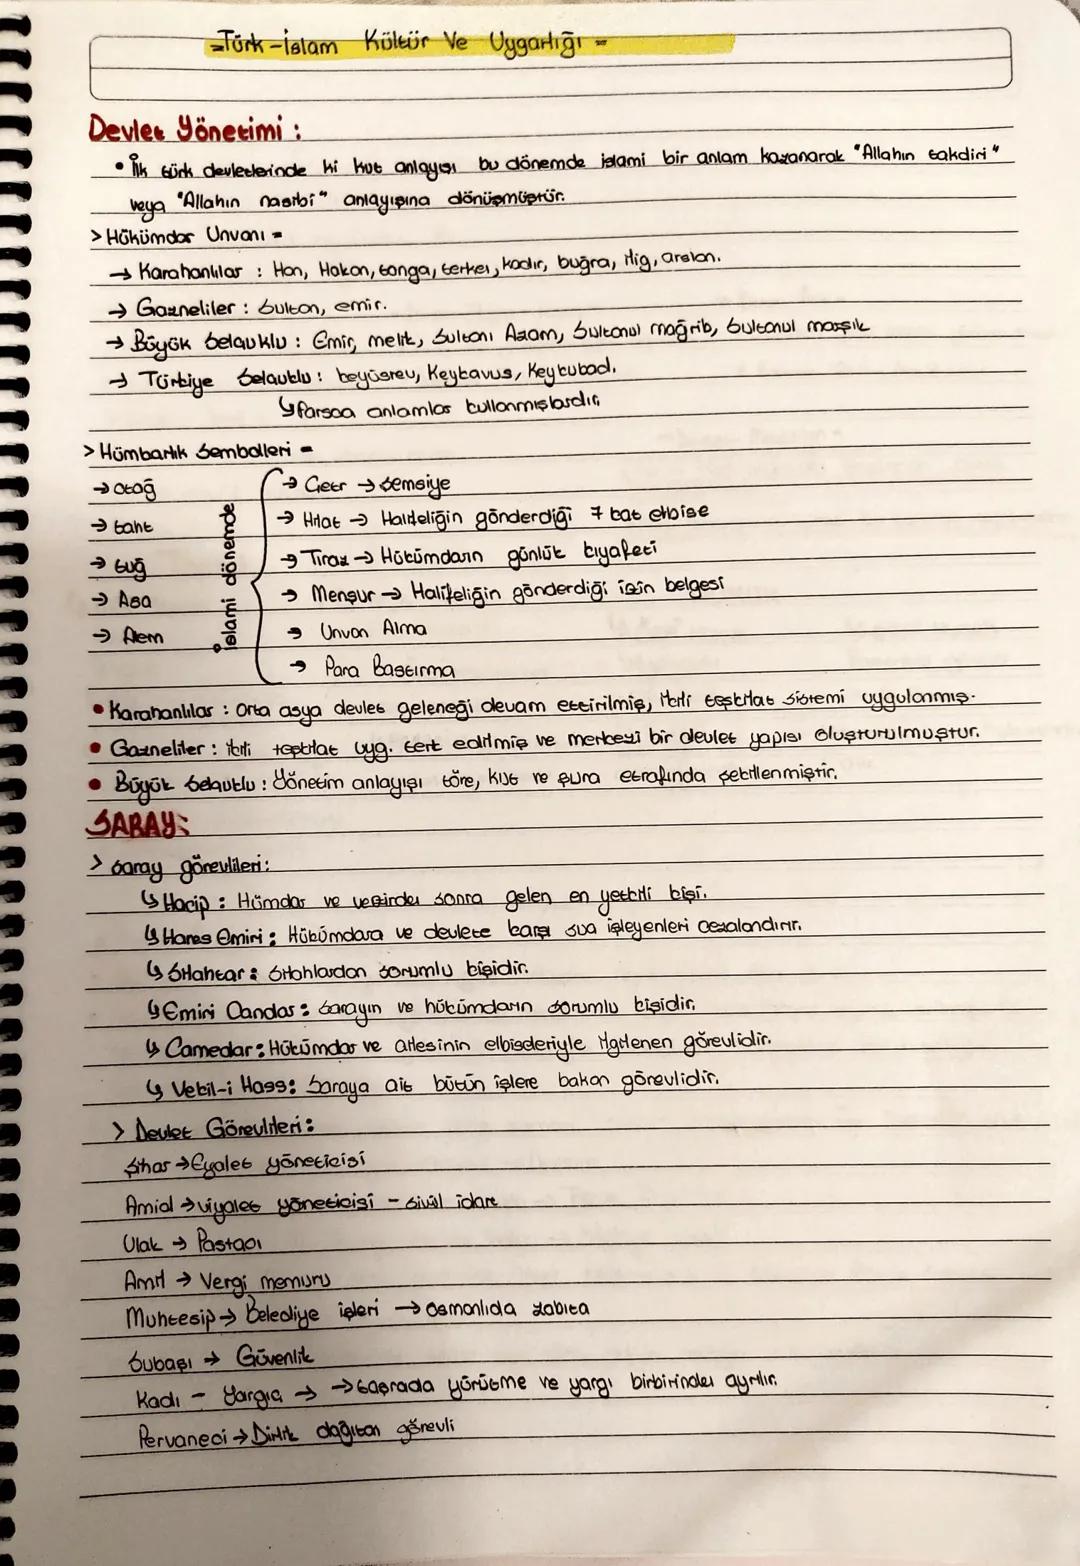 =Türk-İslam Kültür Ve Uygarlığı =
Devlet Yönetimi :
• İlk türk devletlerinde ki kut anlayışı bu dönemde islami bir anlam kazanarak "Allahın takdiri"
veya "Allahın nasibi" anlayışına dönüşmüştür.
> Hükümdar Unvanı =
→ Karahanlılar : Han, Hakan, tonga, terken, kadır, buğra, ilig, arslan.
→ Gazneliler : Sultan, emir.
→ Büyük Selçuklu : Emir, melik, Sultanı Azam, Sultanul mağrib, Sultanul maşrık
→ Türkiye Selçuklu : Keyüsrev, Keykavus, Keykubad.
↳ farsça anlamlar kullanmışlardır.
> Hümbarlık Sembolleri =
→ Otağ
→ taht
→ tuğ
→ Asa
→ Alem
İslami dönemde
→ Çetr → Şemsiye
→ Hilat → Halifeliğin gönderdiği 7 kat elbise
→ Tıraz → Hükümdarın günlük kıyafeti
→ Menşur → Halifeliğin gönderdiği izin belgesi
→ Unvan Alma
→ Para Bastırma
• Karahanlılar : Orta asya devlet geleneği devam ettirilmiş, ikili teşkilat sistemi uygulanmış.
• Gazneliler : ikili teşkilat uyg. terk edilmiş ve merkezi bir devlet yapısı oluşturulmuştur.
• Büyük Selçuklu : Yönetim anlayışı töre, kut ve şura etrafında şekillenmiştir.
SARAY:
> Saray görevlileri:
↳ Hacip : Hümdar ve vezirden sonra gelen en yetkili kişi.
↳ Hares Emiri : Hükümdara ve devlete karşı suç işleyenleri cezalandırır.
↳ Silahtar : Silahlardan sorumlu kişidir.
↳ Emiri Candar : Sarayın ve hükümdarın sorumlu kişidir.
↳ Camedar : Hükümdar ve ailesinin elbiseleriyle ilgilenen görevlidir.
↳ Vekil-i Hass : Saraya ait bütün işlere bakan görevlidir.
> Devlet Görevlileri :
Şıhar → Eyalet yöneticisi
Amid → viyalet yöneticisi - sivil idare
Ulak → Postacı
Amil → Vergi memuru
Muhtesip → Belediye işleri → Osmanlıda zabıta
Subaşı → Güvenlik
Kadı - Yargıç → → taşrada yürütme ve yargı birbirinden ayrılır.
Pervaneci → Dirlik dağıtan görevli